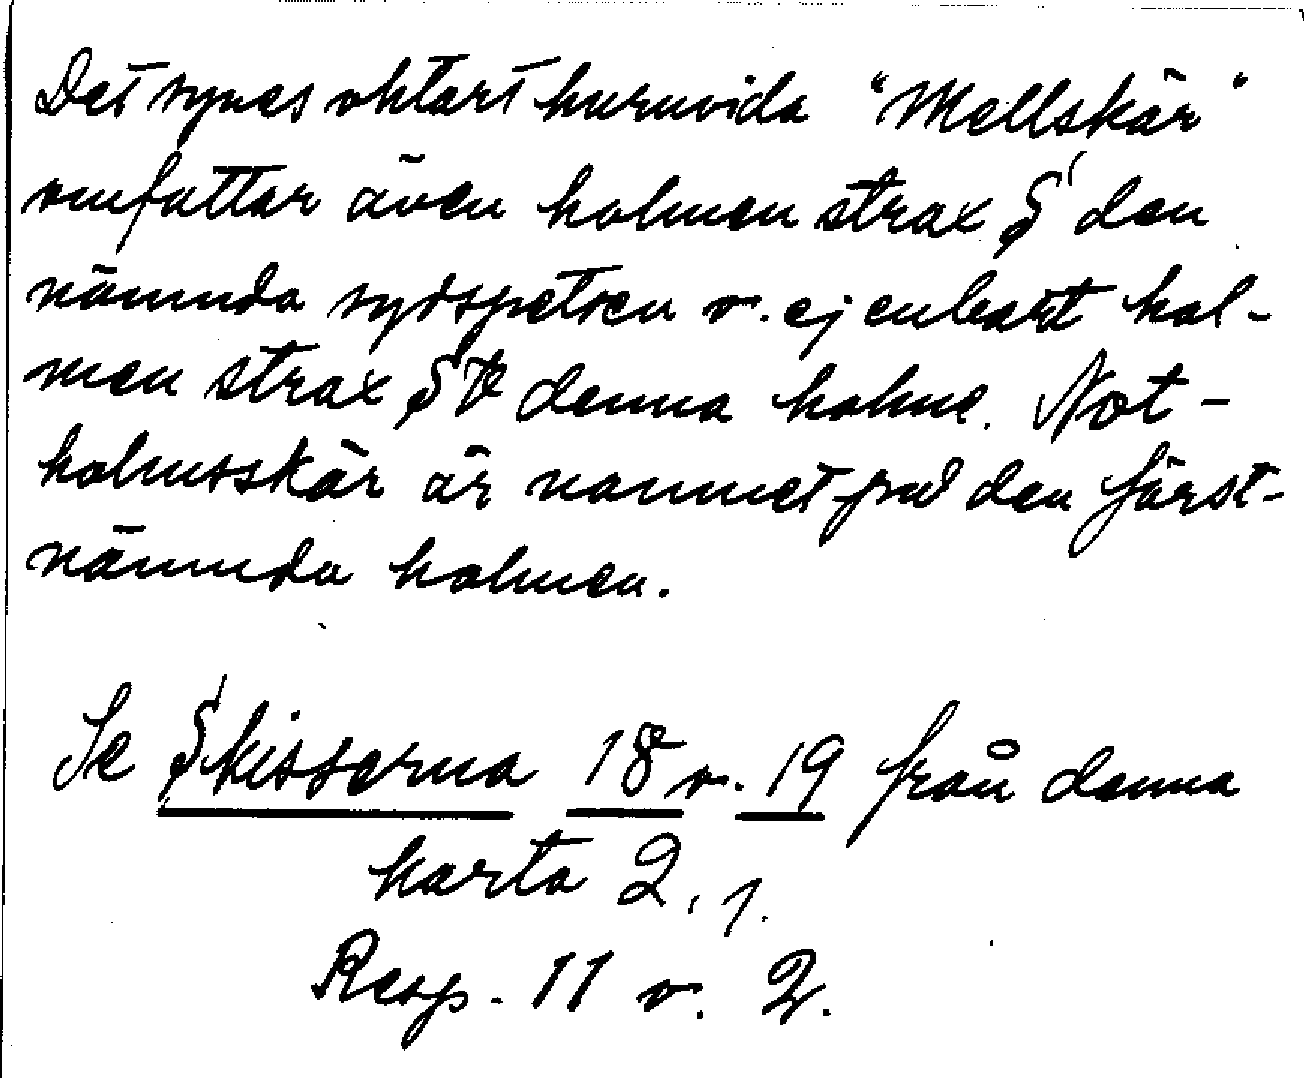 Det synes oklart huruvida "Mellskär"
omfattar även holmen strax S den
nämnda sydspetsen o. ej enbart hol-
men strax SV denna holme. Not-
holmsskär är namnet på den först-
nämnda holmen.
Se Skisserna 18 o. 19 från denna
karta 2, 1.
Resp. 11 o. 2.